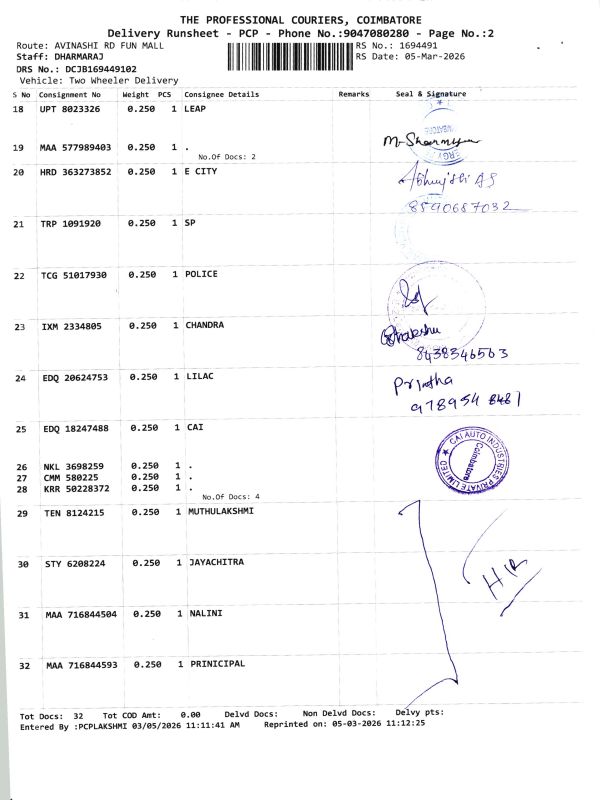 THE PROFESSIONAL COURIERS, COIMBATORE
Delivery Runsheet - PCP - Phone No.:9047080280 - Page No.:2
Route: AVINASHI RD FUN MALL RS No.: 1694491
Staff: DHARMARAJ RS Date: 05-Mar-2026
DRS No.: DCJB169449102
Vehicle: Two Wheeler Delivery
S No Consignment No Weight PCS Consignee Details Remarks Seal & Signature
18 UPT 8023326 0.250 1 LEAP
19 MAA 577989403 0.250 1 .
No.Of Docs: 2
20 HRD 363273852 0.250 1 E CITY
8590687032
21 TRP 1091920 0.250 1 SP
22 TCG 51017930 0.250 1 POLICE
23 IXM 2334805 0.250 1 CHANDRA
8438346563
24 EDQ 20624753 0.250 1 LILAC
978954 8481
25 EDQ 18247488 0.250 1 CAI
CAI AUTO INDUSTRIES PRIVATE LIMITED
Coimbatore
26 NKL 3698259 0.250 1 .
27 CMM 580225 0.250 1 .
28 KRR 50228372 0.250 1 .
No.Of Docs: 4
29 TEN 8124215 0.250 1 MUTHULAKSHMI
30 STY 6208224 0.250 1 JAYACHITRA
31 MAA 716844504 0.250 1 NALINI
32 MAA 716844593 0.250 1 PRINICIPAL
Tot Docs: 32 Tot COD Amt: 0.00 Delvd Docs: Non Delvd Docs: Delvy pts:
Entered By :PCPLAKSHMI 03/05/2026 11:11:41 AM Reprinted on: 05-03-2026 11:12:25